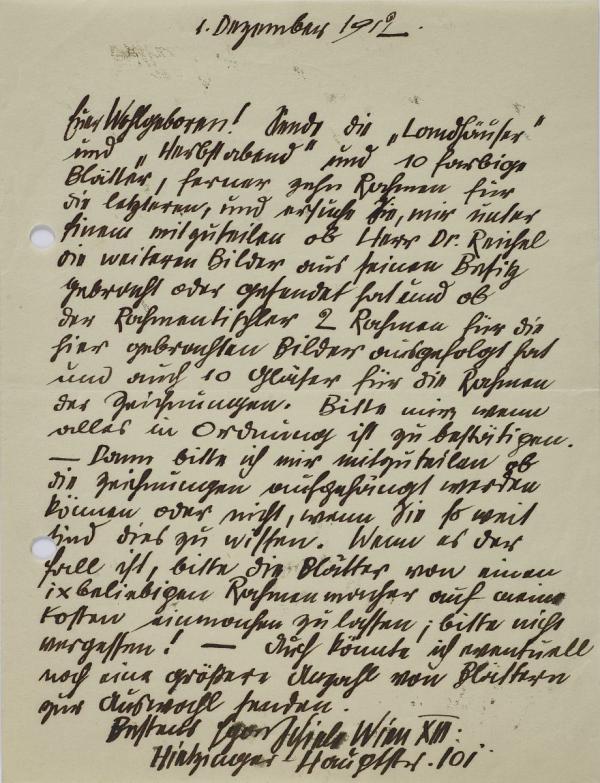 1. Dezember 1912.
Euer Wohlgeboren! Sende die „Landhäuser"
und „Herbstabend" und 10 farbige
Blätter, ferner zehn Rahmen für
die letzteren, und ersuche Sie, mir unter
Einem mitzuteilen ob Herr Dr. Reichel
die weiteren Bilder aus seinen Besitz
gebracht oder gesendet hat und ob
der Rahmentischler 2 Rahmen für die
hier gebrachten Bilder ausgefolgt hat
und auch 10 Gläser für die Rahmen
der Zeichnungen. Bitte mir, wenn
alles in Ordnung ist zu bestätigen.
— Dann bitte ich mir mitzuteilen ob
die Zeichnungen aufgehängt werden
können oder nicht, wenn Sie so weit
sind dies zu wissen. Wenn es der
Fall ist, bitte die Blätter von einen
ixbeliebigen Rahmenmacher auf meine
Kosten einmachen zu lassen; bitte nicht
vergessen! — Auch könnte ich eventuell
noch eine größere Anzahl von Blättern
zur Auswahl senden.
Bestens Egon Schiele Wien XIII.
Hietzinger-Hauptstr. 101